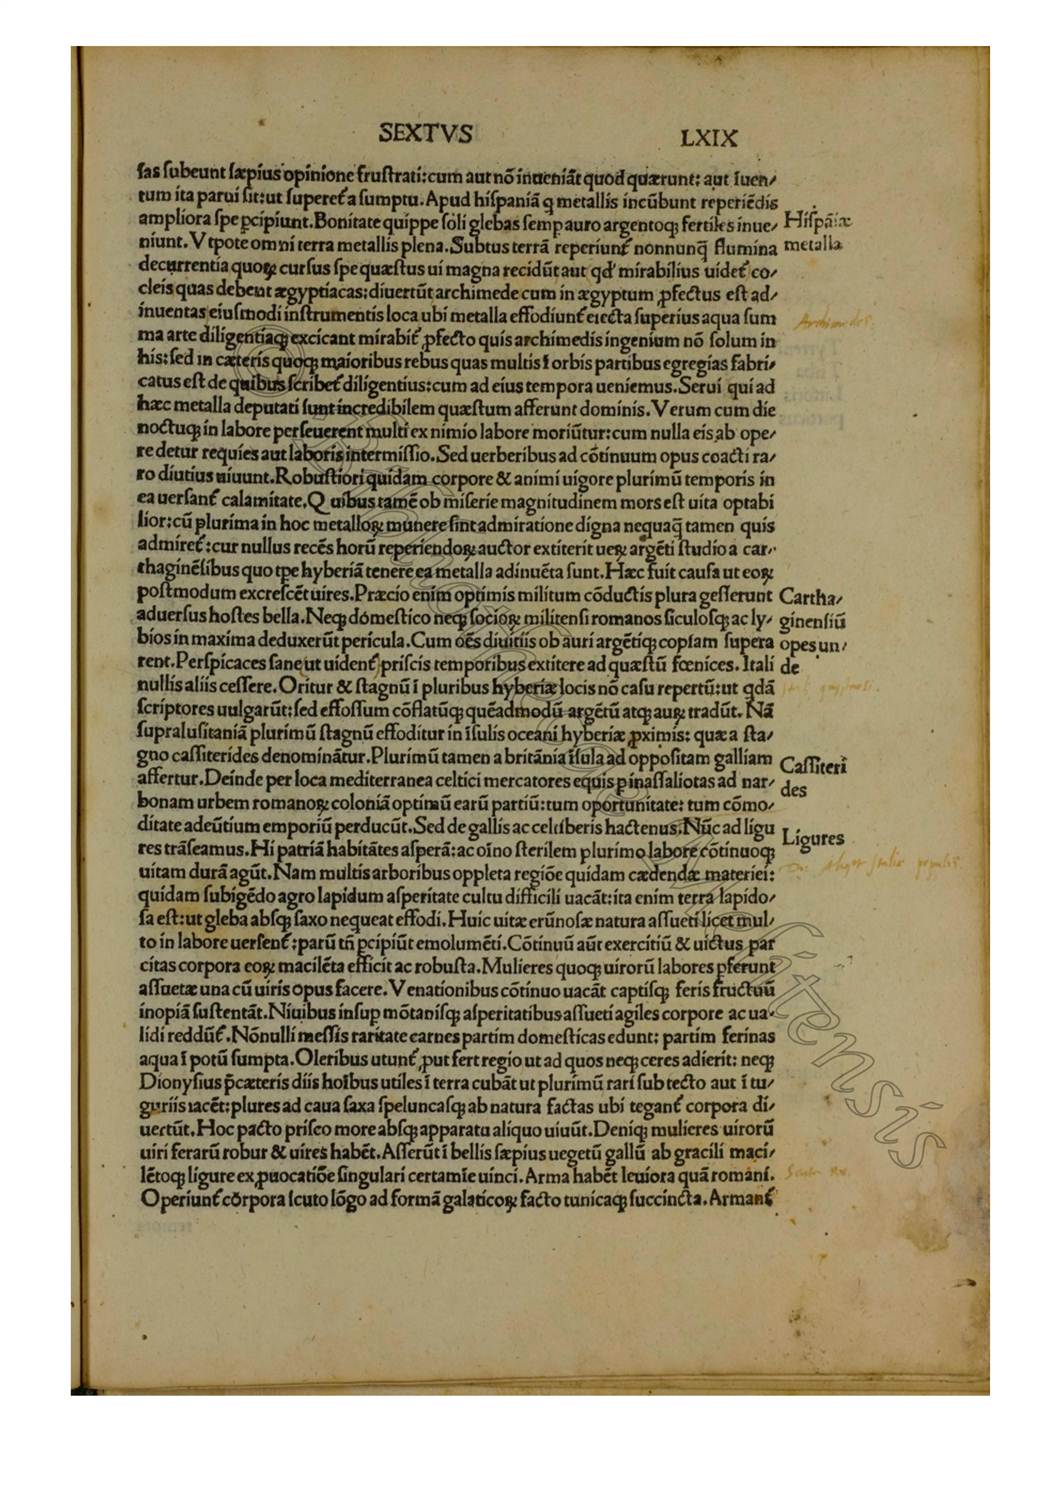 SEXTVS LXIX
ſas ſubeunt ſæpius opinione fruſtrati: cum aut nõ inueniãt quod quærunt: aut Iuen/
tum ita parui ſit: ut ſuperet᷑ a ſumptu. Apud hiſpaniã q metallis incũbunt reperiẽdis
ampliora ſpe ꝑcipiunt. Bonitate quippe ſoli glebas ſemp auro argentoqꝫ fertiles inue/
niunt. Vtpote omni terra metallis plena. Subtus terrã reperiunt᷑ nonnunq̃ flumina
Hiſpãiæ
metalla
decurrentia quoꝝ curſus ſpe quæſtus ui magna recidũt aut qd' mirabilius uidet᷑ co/
cleis quas debent ægyptiacas: diuertũt archimede cum in ægyptum ꝓfectus eſt ad/
inuentas eiuſmodi inſtrumentis loca ubi metalla effodiunt᷑ eiecta ſuperius aqua ſum
ma arte diligentiaqꝫ exicant mirabit᷑ ꝓfecto quis archimedis ingenium nõ ſolum in
his: ſed in cæteris quoqꝫ maioribus rebus quas multis ĩ orbis partibus egregias fabri/
catus eſt de quibus ſcribet᷑ diligentius: cum ad eius tempora ueniemus. Serui qui ad
hæc metalla deputati ſunt incredibilem quæſtum afferunt dominis. Verum cum die
noctuqꝫ in labore perſeuerent multi ex nimio labore moriũtur: cum nulla eis ab ope/
re detur requies aut laboris intermiſſio. Sed uerberibus ad cõtinuum opus coacti ra/
ro diutius uiuunt. Robuſtiori quidam corpore & animi uigore plurimũ temporis in
ea uerſant᷑ calamitate. Quibus tamẽ ob miſerie magnitudinem mors eſt uita optabi
lior: cũ plurima in hoc metalloꝝ munere ſint admiratione digna nequaq̃ tamen quis
admiret᷑: cur nullus recẽs horũ reperiendoꝝ auctor extiterit ueꝝ argẽti ſtudio a car/
thaginẽſibus quo tpe hyberiã tenere ea metalla adinuẽta ſunt. Hæc fuit cauſa ut eoꝝ
poſtmodum excreſcẽt uires. Præcio enim optimis militum cõductis plura geſſerunt
aduerſus hoſtes bella. Neqꝫ domeſtico neqꝫ ſocioꝝ militenſi romanos ſiculoſqꝫ ac ly/
bios in maxima deduxerũt pericula. Cum oẽs diuitiis ob auri argẽtiqꝫ copiam ſupera
rent. Perſpicaces ſane ut uident᷑ priſcis temporibus extitere ad quæſtũ fœnices. Itali
Cartha/
ginenſiũ
opes un/
de
nullis aliis ceſſere. Oritur & ſtagnũ ĩ pluribus hyberiæ locis nõ caſu repertũ: ut qdã
ſcriptores uulgarũt: ſed effoſſum cõflatũqꝫ quẽadmodũ argẽtũ atqꝫ auꝝ tradũt. Nã
ſupraluſitaniã plurimũ ſtagnũ effoditur in ĩſulis oceani hyberiæ ꝓximis: quæ a ſta/
gno caſſiterides denominãtur. Plurimũ tamen a britãnia ĩſula ad oppoſitam galliam
affertur. Deinde per loca mediterranea celtici mercatores equis pinaſſaliotas ad nar/
Caſſiteri
des
bonam urbem romanoꝝ coloniã optimũ earũ partiũ: tum oportunitate: tum cõmo/
ditate adeũtium emporiũ perducũt. Sed de gallis ac celtiberis hactenus. Nũc ad ligu
res trãſeamus. Hi patriã habitãtes aſperã: ac oĩno ſterilem plurimo labore cõtinuoqꝫ
Ligures
uitam durã agũt. Nam multis arboribus oppleta regiõe quidam cædendæ materiei:
quidam ſubigẽdo agro lapidum aſperitate cultu difficili uacãt: ita enim terra lapido/
ſa eſt: ut gleba abſqꝫ ſaxo nequeat effodi. Huic uitæ erũnoſæ natura aſſueti licet mul/
to in labore uerſent᷑: parũ tñ ꝑcipiũt emolumẽti. Cõtinuũ aũt exercitiũ & uictus par
citas corpora eoꝝ macilẽta efficit ac robuſta. Mulieres quoqꝫ uirorũ labores pferunt
aſſuetæ una cũ uiris opus facere. Venationibus cõtinuo uacãt captiſqꝫ feris fructuũ
inopiã ſuſtentãt. Niuibus inſup mõtaniſqꝫ aſperitatibus aſſueti agiles corpore ac ua/
lidi reddũt᷑. Nõnulli meſſis raritate carnes partim domeſticas edunt: partim ferinas
aqua ĩ potũ ſumpta. Oleribus utunt᷑ ꝓut fert regio ut ad quos neqꝫ ceres adierit: neqꝫ
Dionyſius p̃cæteris diis hoĩbus utiles ĩ terra cubãt ut plurimũ rari ſub tecto aut ĩ tu/
guriis iacẽt: plures ad caua ſaxa ſpeluncaſqꝫ ab natura factas ubi tegant᷑ corpora di/
uertũt. Hoc pacto priſco more abſqꝫ apparatu aliquo uiuũt. Deniqꝫ mulieres uirorũ
uiri ferarũ robur & uires habẽt. Aſſerũt ĩ bellis ſæpius uegetũ gallũ ab gracili maci/
lẽtoqꝫ ligure ex ꝓuocatiõe ſingulari certamĩe uinci. Arma habẽt leuiora quã romani.
Operiunt᷑ corpora ſcuto lõgo ad formã galaticoꝝ facto tunicaqꝫ ſuccincta. Armant᷑